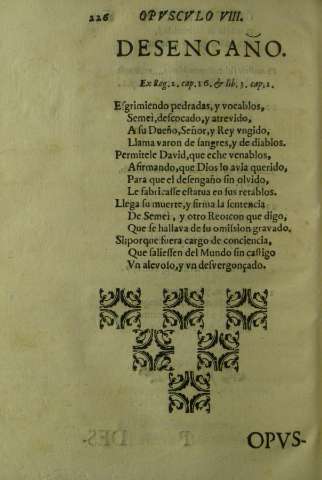 226 OPVSCVLO VIII.
DESENGAÑO.
Ex Reg. 2. cap. 16. & lib. 3. cap. 2.
Esgrimiendo pedradas, y vocablos,
Semei, descocado, y atrevido,
A su Dueño, Señor, y Rey vngido,
Llama varon de sangres, y de diablos.
Permitele David, que eche venablos,
Afirmando, que Dios lo avia querido,
Para que el desengaño sin olvido,
Le fabricasse estatua en sus retablos.
Llega su muerte, y firma la sentencia
De Semei, y otro Reo: con que digo,
Que se hallava de su omission gravado,
Si; porque fuera cargo de conciencia,
Que saliessen del Mundo sin castigo
Vn alevoso, y vn desvergonçado.
OPVS-